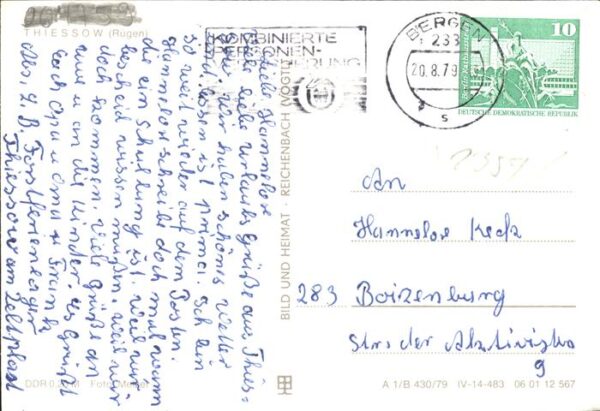 THIESSOW (Rügen)
KOMBINIERTE
PERSONEN-
BERGEN
233
20.8.79
s
10
DEUTSCHE DEMOKRATISCHE REPUBLIK
Liebe Hannelore
liebe Urlaubs Grüße aus Thies-
sow. Wir haben schönes Wetter
Essen ist prima. Ich bin
so weit wieder auf dem Posten.
Hannelore schreibe doch mal wann
die ein Schulung ist. Weil wir
bescheid wissen müßen. Weil wir
doch kommen. Viele Grüße an
und u an die Kinder. Es Grüßt
Euch Opa u Oma u Frank
Abs. Z. B. Forstferienlager
Thiessow am Zeltplatz
BILD UND HEIMAT · REICHENBACH (VOGTL)
An
Hannelore
283 Boizenburg
Str. der
9
DDR
A 1/B 430/79 IV-14-483 06 01 12 567